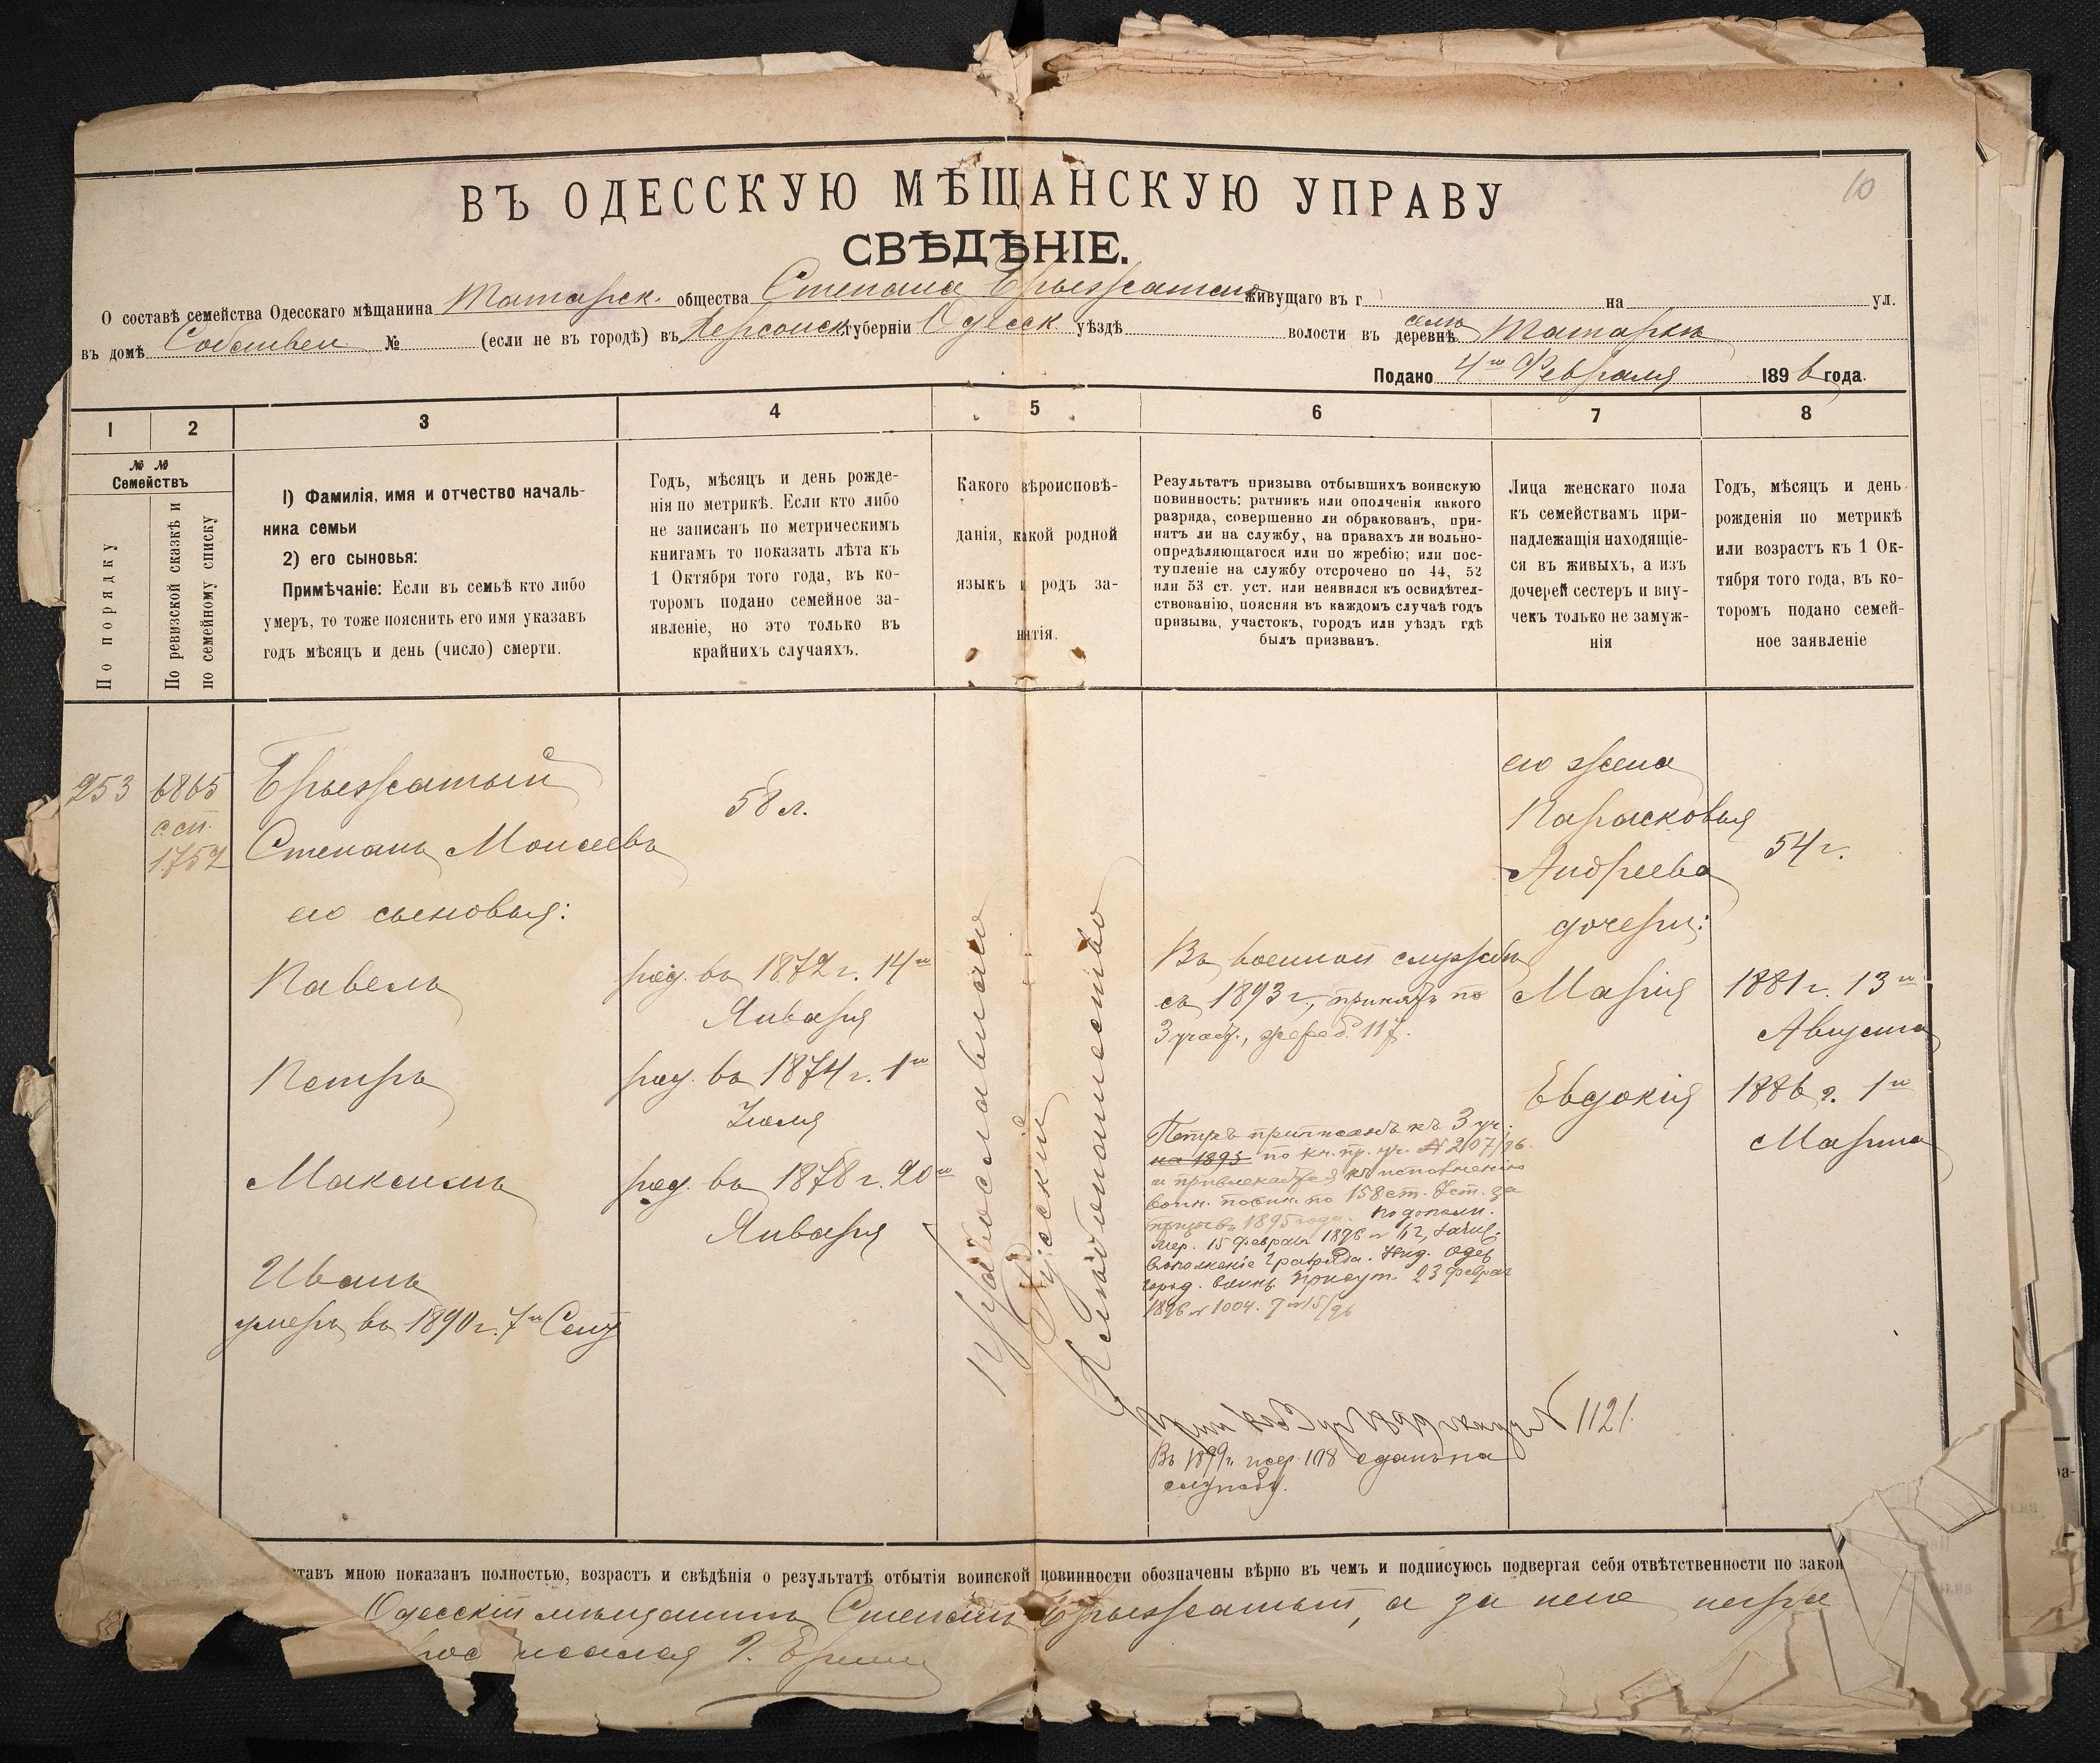 10
ВЪ ОДЕССКУЮ МѢЩАНСКУЮ УПРАВУ
СВѢДѢНІЕ.
О составѣ семейства Одесскаго мѣщанина Татарск. общества Степана Брыжатаго живущаго въ г на ул.
въ домѣ Собствен № (если не въ городѣ) въ Херсонск губерніи Одесск. уѣздѣ волости въ деревнѣ селѣ Татаркѣ
Подано 4го Февраля 1896 года.
1 2 3 4 5 6 7 8
№ №
Семействъ
По порядку
По ревизской сказкѣ и
по семейному списку
1) Фамилія, имя и отчество началь-
ника семьи
2) его сыновья:
Примѣчаніе: Если въ семьѣ кто либо
умеръ, то тоже пояснить его имя указавъ
годъ мѣсяцъ и день (число) смерти.
Годъ, мѣсяцъ и день рожде-
нія по метрикѣ. Если кто либо
не записанъ по метрическимъ
книгамъ то показать лѣта къ
1 Октября того года, въ ко-
торомъ подано семейное за-
явленіе, но это только въ
крайнихъ случаяхъ.
Какого вѣроисповѣ-
данія, какой родной
языкъ и родъ за-
нятія.
Результатъ призыва отбывшихъ воинскую
повинность: ратникъ или ополченія какого
разряда, совершенно ли обракованъ, при-
нятъ ли на службу, на правахъ ли вольно-
опредѣляющагося или по жребію; или пос-
тупленіе на службу отсрочено по 44, 52
или 53 ст. уст. или неявился къ освидѣтел-
ствованію, поясняя въ каждомъ случаѣ годъ
призыва, участокъ, городъ или уѣздъ гдѣ
былъ призванъ.
Лица женскаго пола
къ семействамъ при-
надлежащія находящіе-
ся въ живыхъ, а изъ
дочерей сестеръ и вну-
чекъ только не замуж-
нія
Годъ, мѣсяцъ и день
рожденія по метрикѣ
или возрастъ къ 1 Ок-
тября того года, въ ко-
торомъ подано семей-
ное заявленіе
253
6865
с.сп.
1752
Брыжатый
Степанъ Моисеевъ
его сыновья:
Павелъ
Петръ
Максимъ
Иванъ
умеръ въ 1890 г. 7го Сент
58 л.
род. въ 1872 г. 14го
Января
род. въ 1874 г. 1го
Іюля
род. въ 1878 г. 20го
Января
Православнаго
Русскій
Хлѣбопашество
Въ военной службѣ
съ 1893 г., принятъ по
3 участ., жереб. 117.
Петръ приписанъ къ 3 уч.
на 1895 по кн. пр. уч. № 207/96
и привлекается къ исполненію
воин. повин. по 158 ст. Уст. за
призывъ 1895 года. По дополн.
жер. 15 Февраля 1896 № 42, зачис.
в ополченіе 1 разряда. Одес
город. воинск. присут. 23 Февраля
1896 № 1004.
№ 1121.
Въ 1899 г. жер. 108 сданъ на
службу.
его жена
Парасковья
Андреева
дочери:
Марія
Евдокія
54 г.
1881 г. 13го
Августа
1886 г. 1го
Марта
ставъ мною показан полностью, возрастъ и свѣдѣнія о результатѣ отбытія воинской повинности обозначены вѣрно въ чемъ и подписуюсь подвергая себя отвѣтственности по закон
Одесскій мѣщанинъ Степанъ Брыжатый, а за него негра